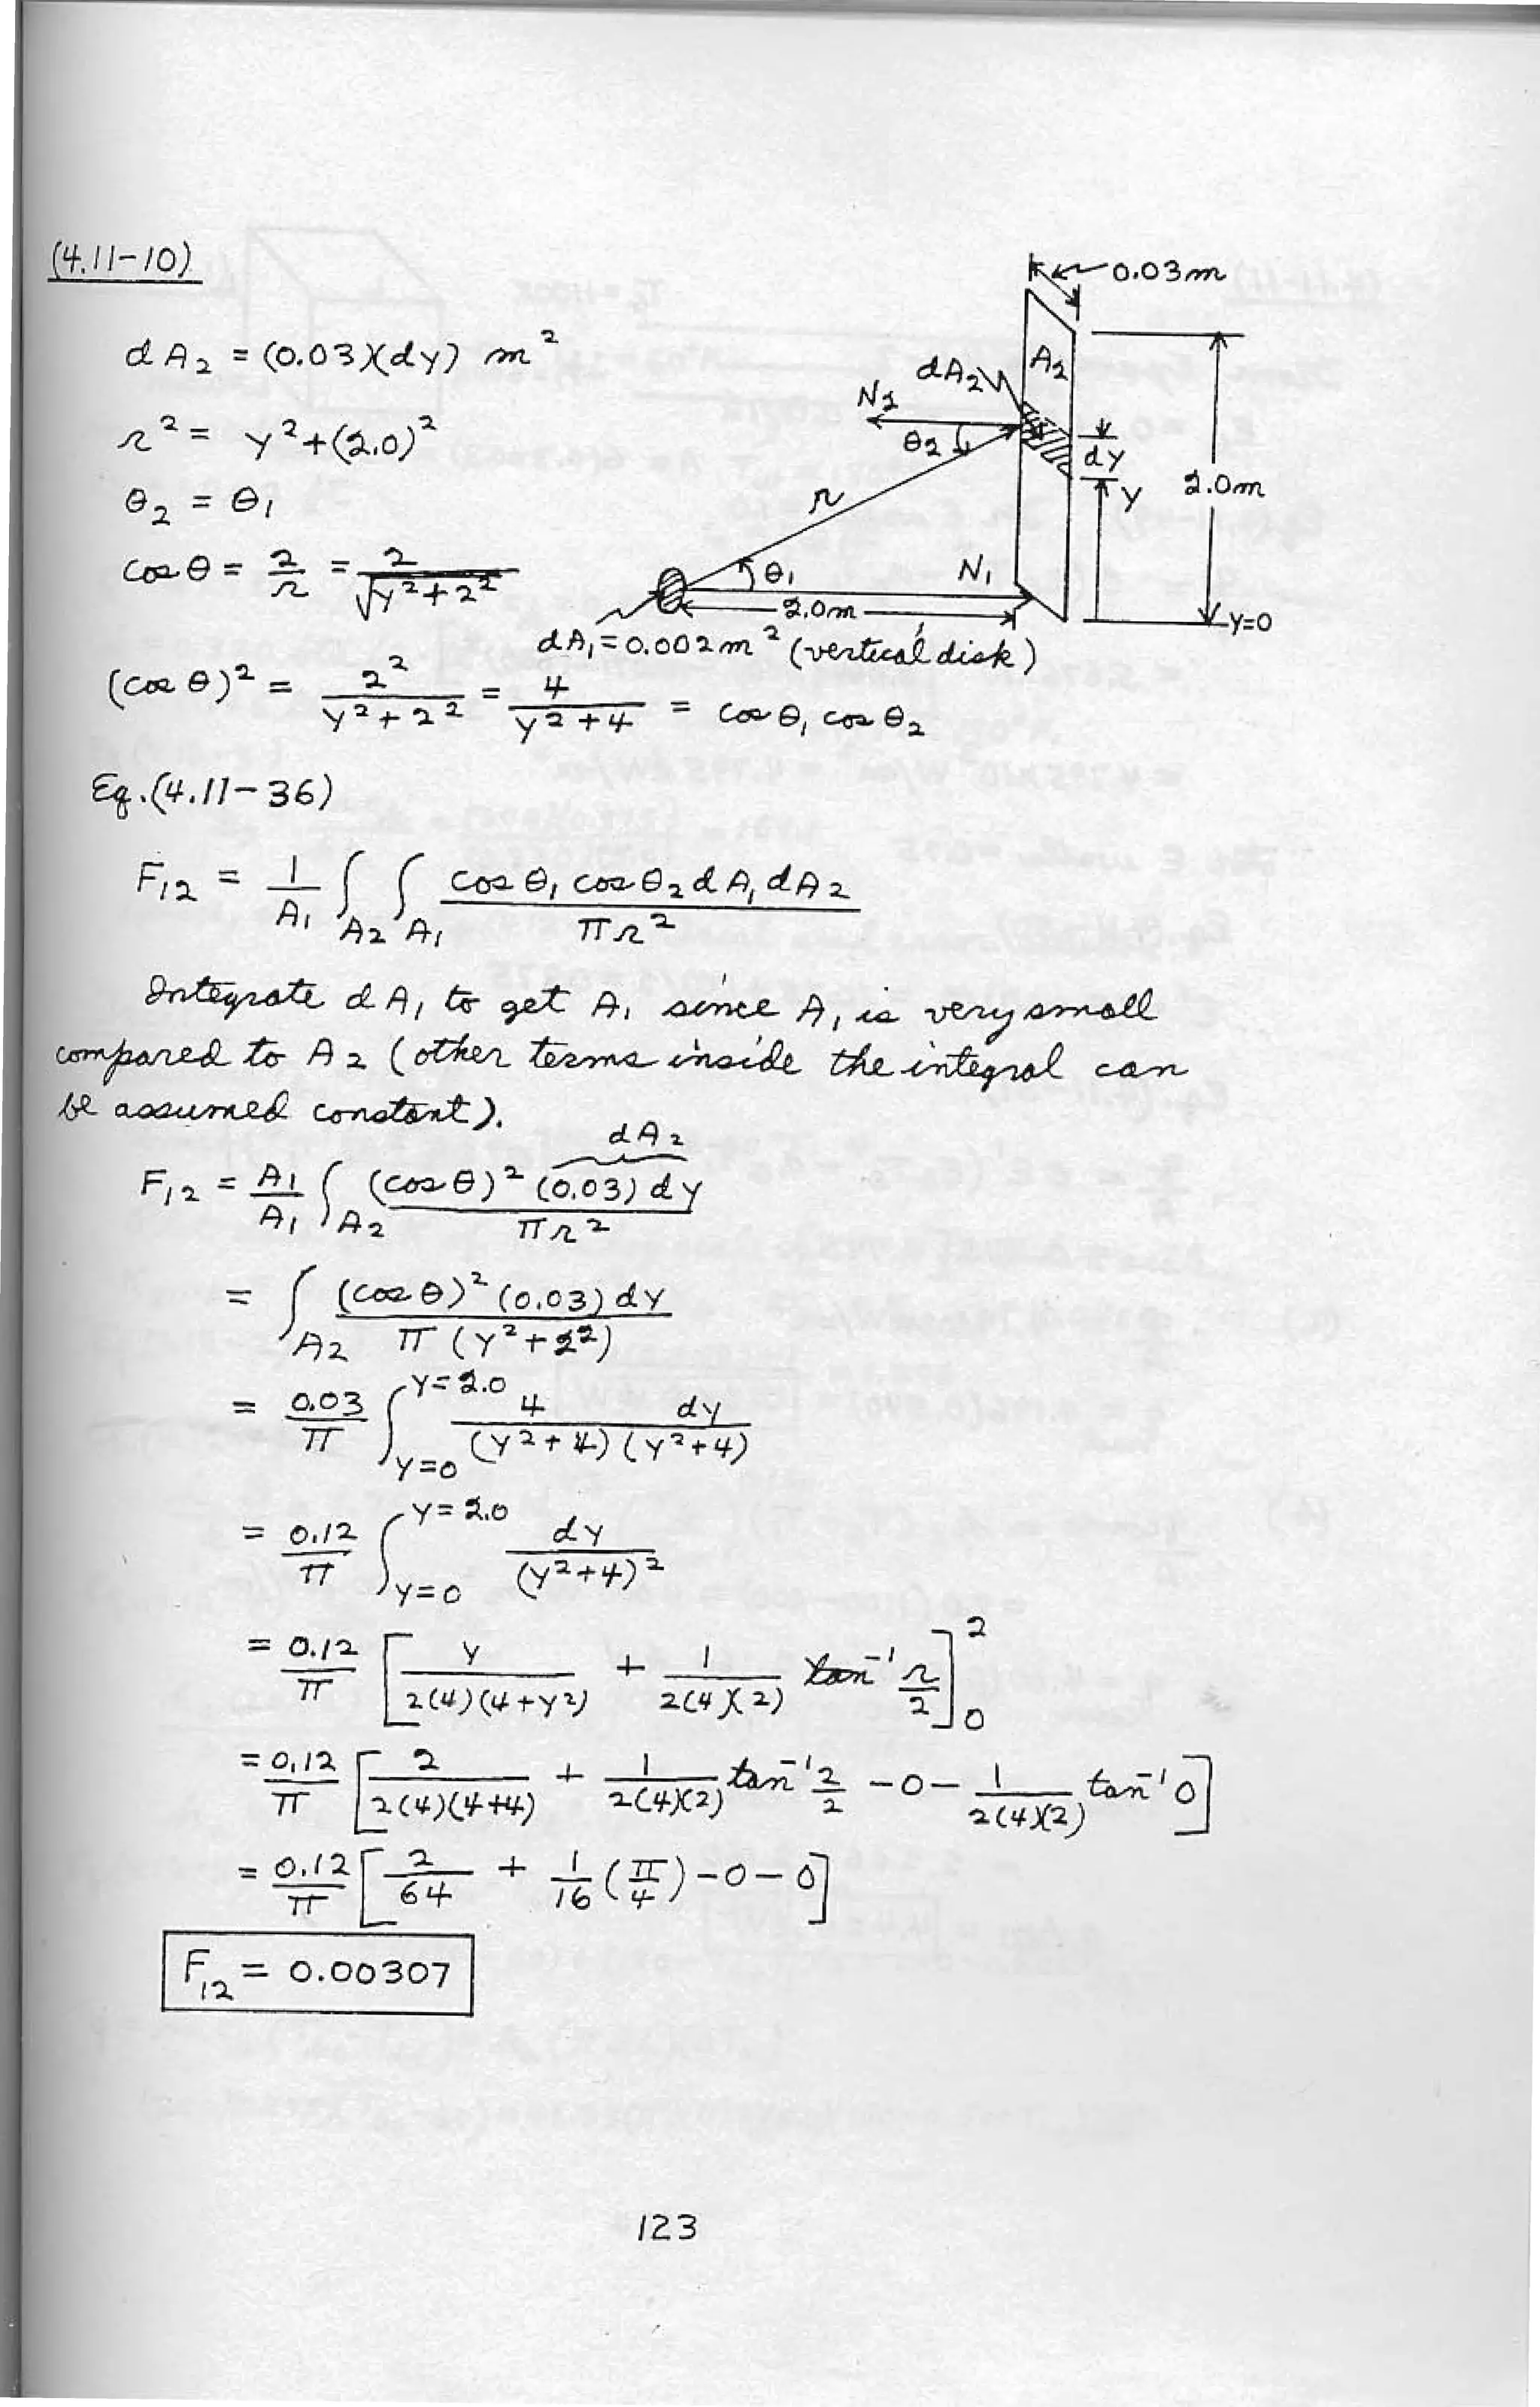 (4.11-10)
dA₂ = (0.03)(dy) m²
r² = y² + (2.0)²
θ₂ = θ₁
cos θ = 2/r = 2/√(y²+2²)
(cos θ)² = 2²/(y²+2²) = 4/(y²+4) = cos θ₁ cos θ₂
0.03m
A₂
dA₂
N₂
θ₂
dy
y
2.0m
r
θ₁
N₁
2.0m
y=0
dA₁ = 0.002 m² (vertical disk)
Eq. (4.11-36)
F₁₂ = 1/A₁ ∫A₂ ∫A₁ cos θ₁ cos θ₂ dA₁ dA₂ / πr²
Integrate dA₁ to get A₁ since A₁ is very small
compared to A₂ (other terms inside the integral can
be assumed constant).
dA₂
F₁₂ = A₁/A₁ ∫A₂ (cos θ)² (0.03) dy / πr²
= ∫A₂ (cos θ)² (0.03) dy / π(y²+2²)
= 0.03/π ∫y=0 y=2.0 4 dy / (y²+4)(y²+4)
= 0.12/π ∫y=0 y=2.0 dy / (y²+4)²
= 0.12/π [ y / 2(4)(4+y²) + 1 / 2(4)(2) tan⁻¹ r/2 ]₀²
= 0.12/π [ 2 / 2(4)(4+4) + 1 / 2(4)(2) tan⁻¹ 2/2 - 0 - 1 / 2(4)(2) tan⁻¹ 0 ]
= 0.12/π [ 2/64 + 1/16 (π/4) - 0 - 0 ]
F₁₂ = 0.00307
123